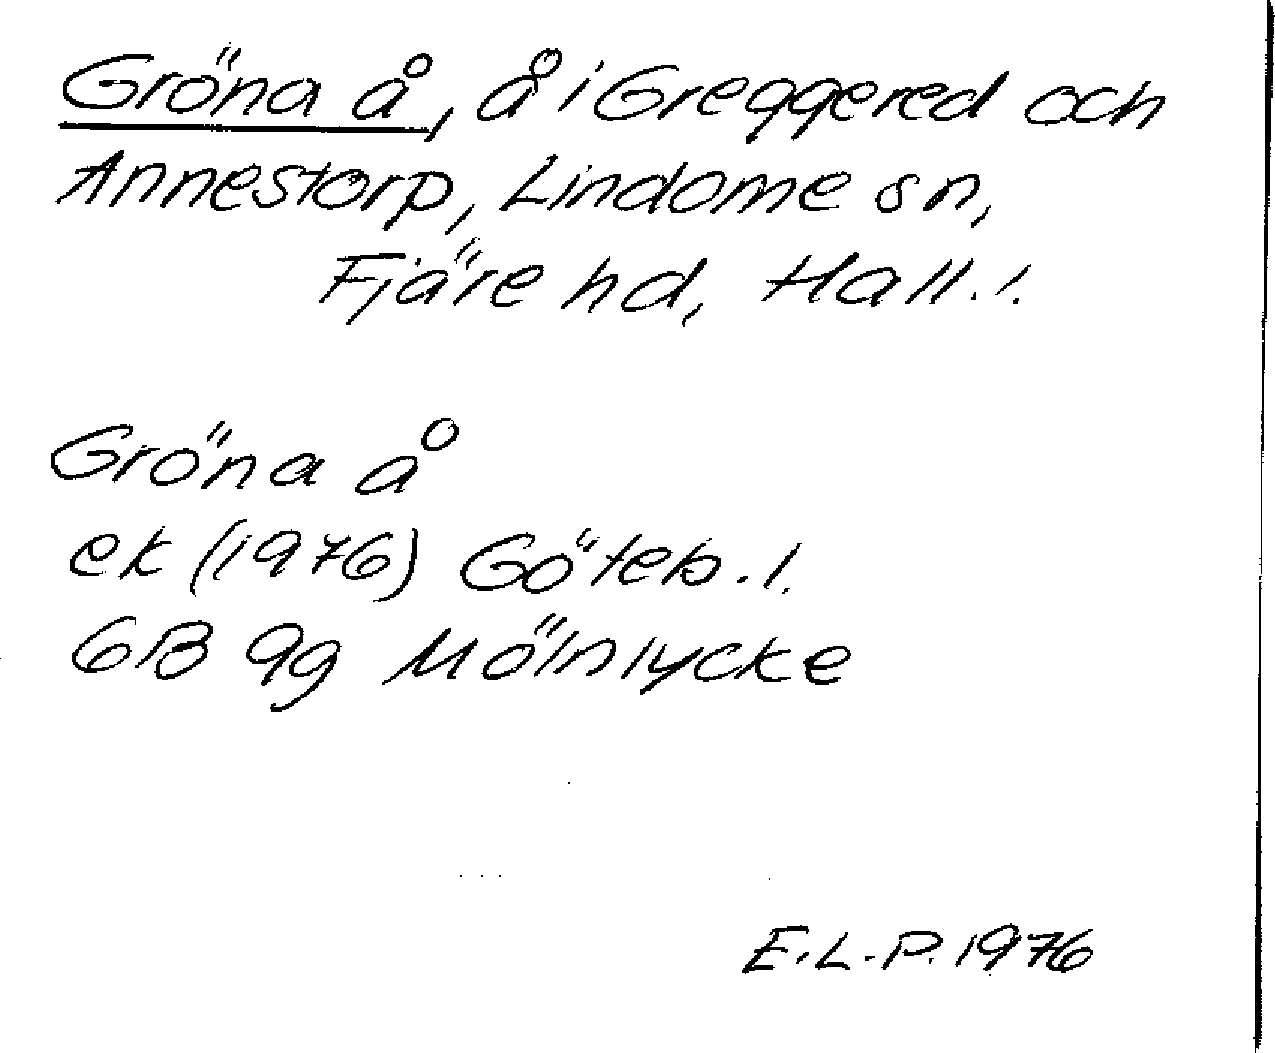 Gröna å, å i Greggered och
Annestorp, Lindome sn,
Fjäre hd, Hall. l.
Gröna å
ek (1976) Göteb. l.
6B 9g Mölnlycke
E.L.P. 1976